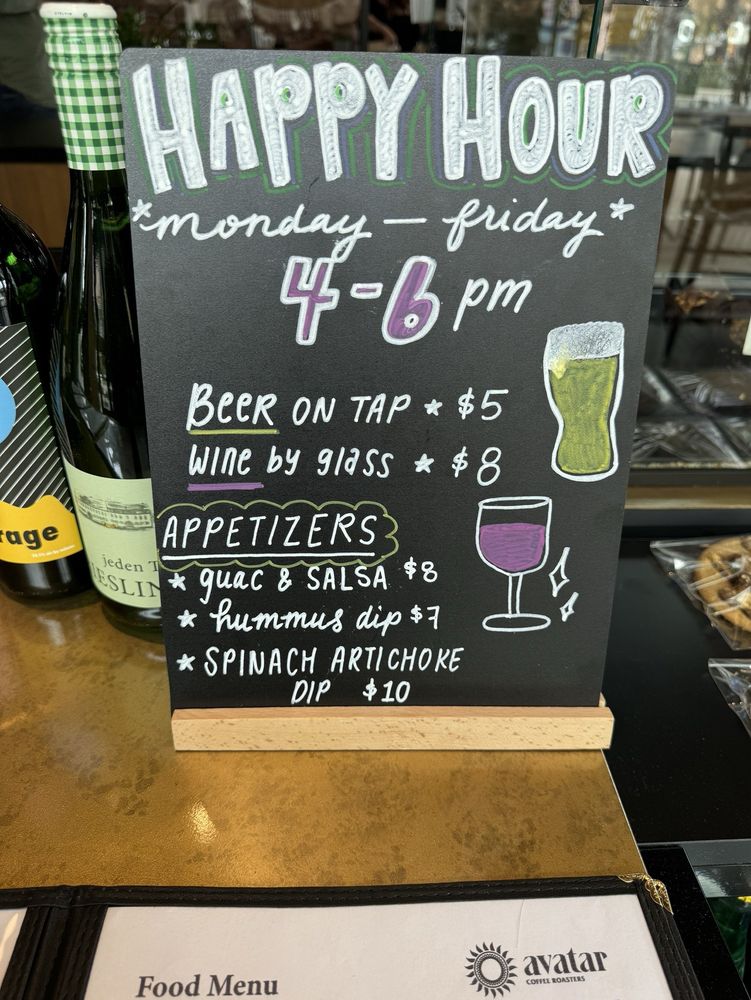 HAPPY HOUR
*monday — friday*
4-6 pm
BEER ON TAP * $5
WINE by glass * $8
APPETIZERS
* guac & SALSA $8
* hummus dip $7
* SPINACH ARTICHOKE
DIP $10
rage
jeden T
IESLIN
Food Menu
avatar
COFFEE ROASTERS